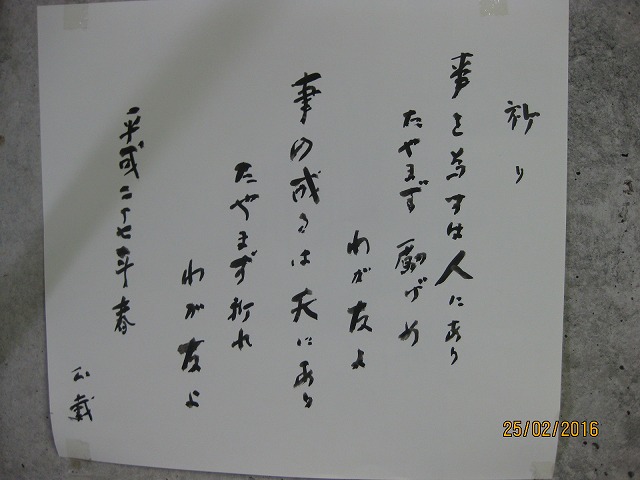 祈り
事を為すは人にあり
たやまず励げめ
わが友よ
事の成るは天にあり
たやまず祈れ
わが友よ
平成二十七年春
25/02/2016